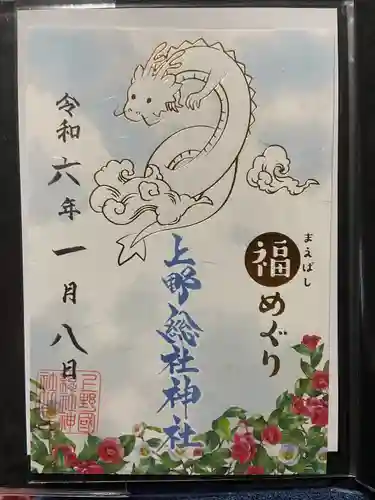 まえばし
福めぐり
上野総社神社
令和六年一月八日